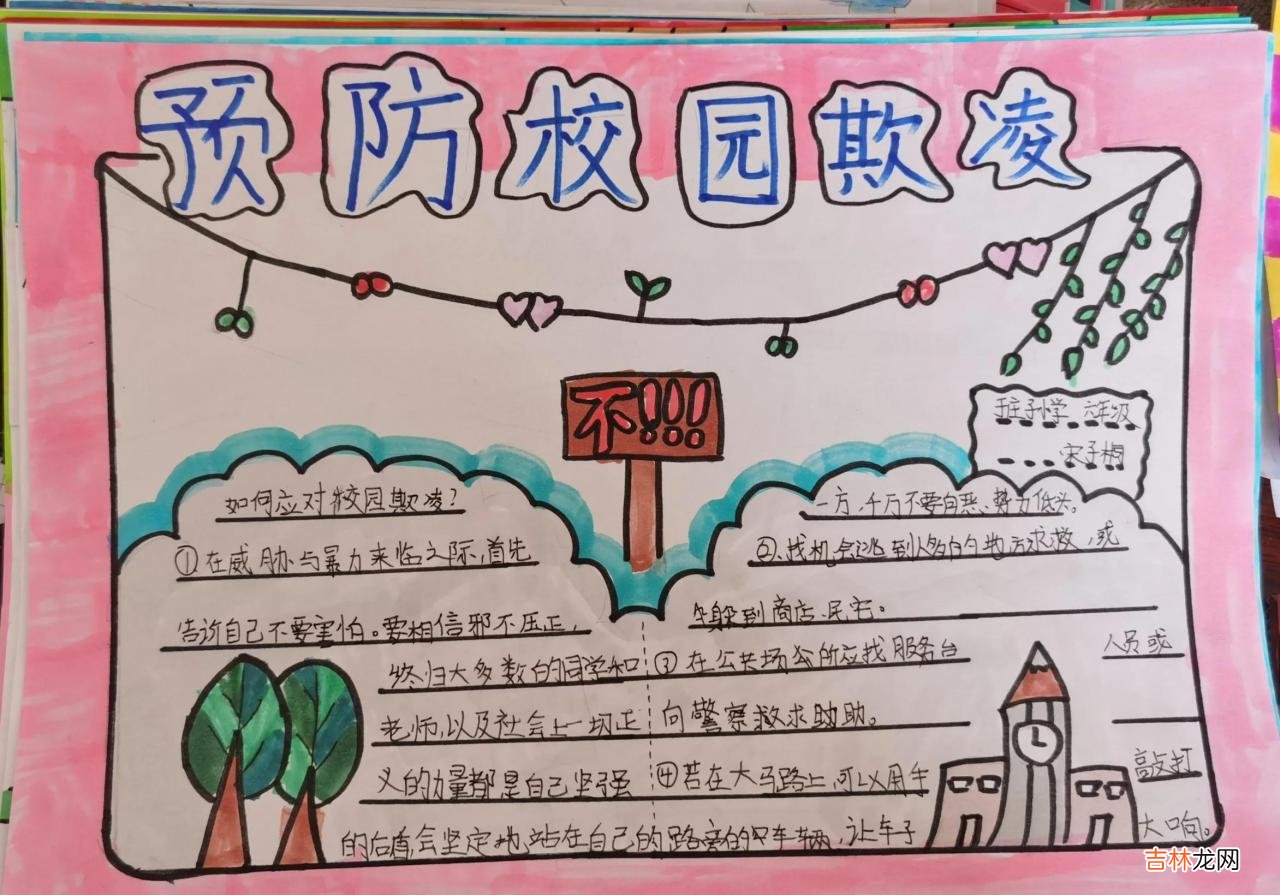 预防校园欺凌
不!!!
六年级
宋子桐
如何应对校园欺凌?
①在威胁与暴力来临之际,首先
告诉自己不要害怕。要相信邪不压正,
终归大多数的同学和
老师,以及社会上一切正
义的力量都是自己坚强
的后盾会坚定地站在自己的
一方,千万不要向恶势力低头。
②找机会逃到人多的地方求救,或
躲到商店、民宅。
③在公共场公所应找服务台人员或
向警察救求助助。
④若在大马路上,可以用车敲打
路旁的车辆,让车子大响。
吉林龙网